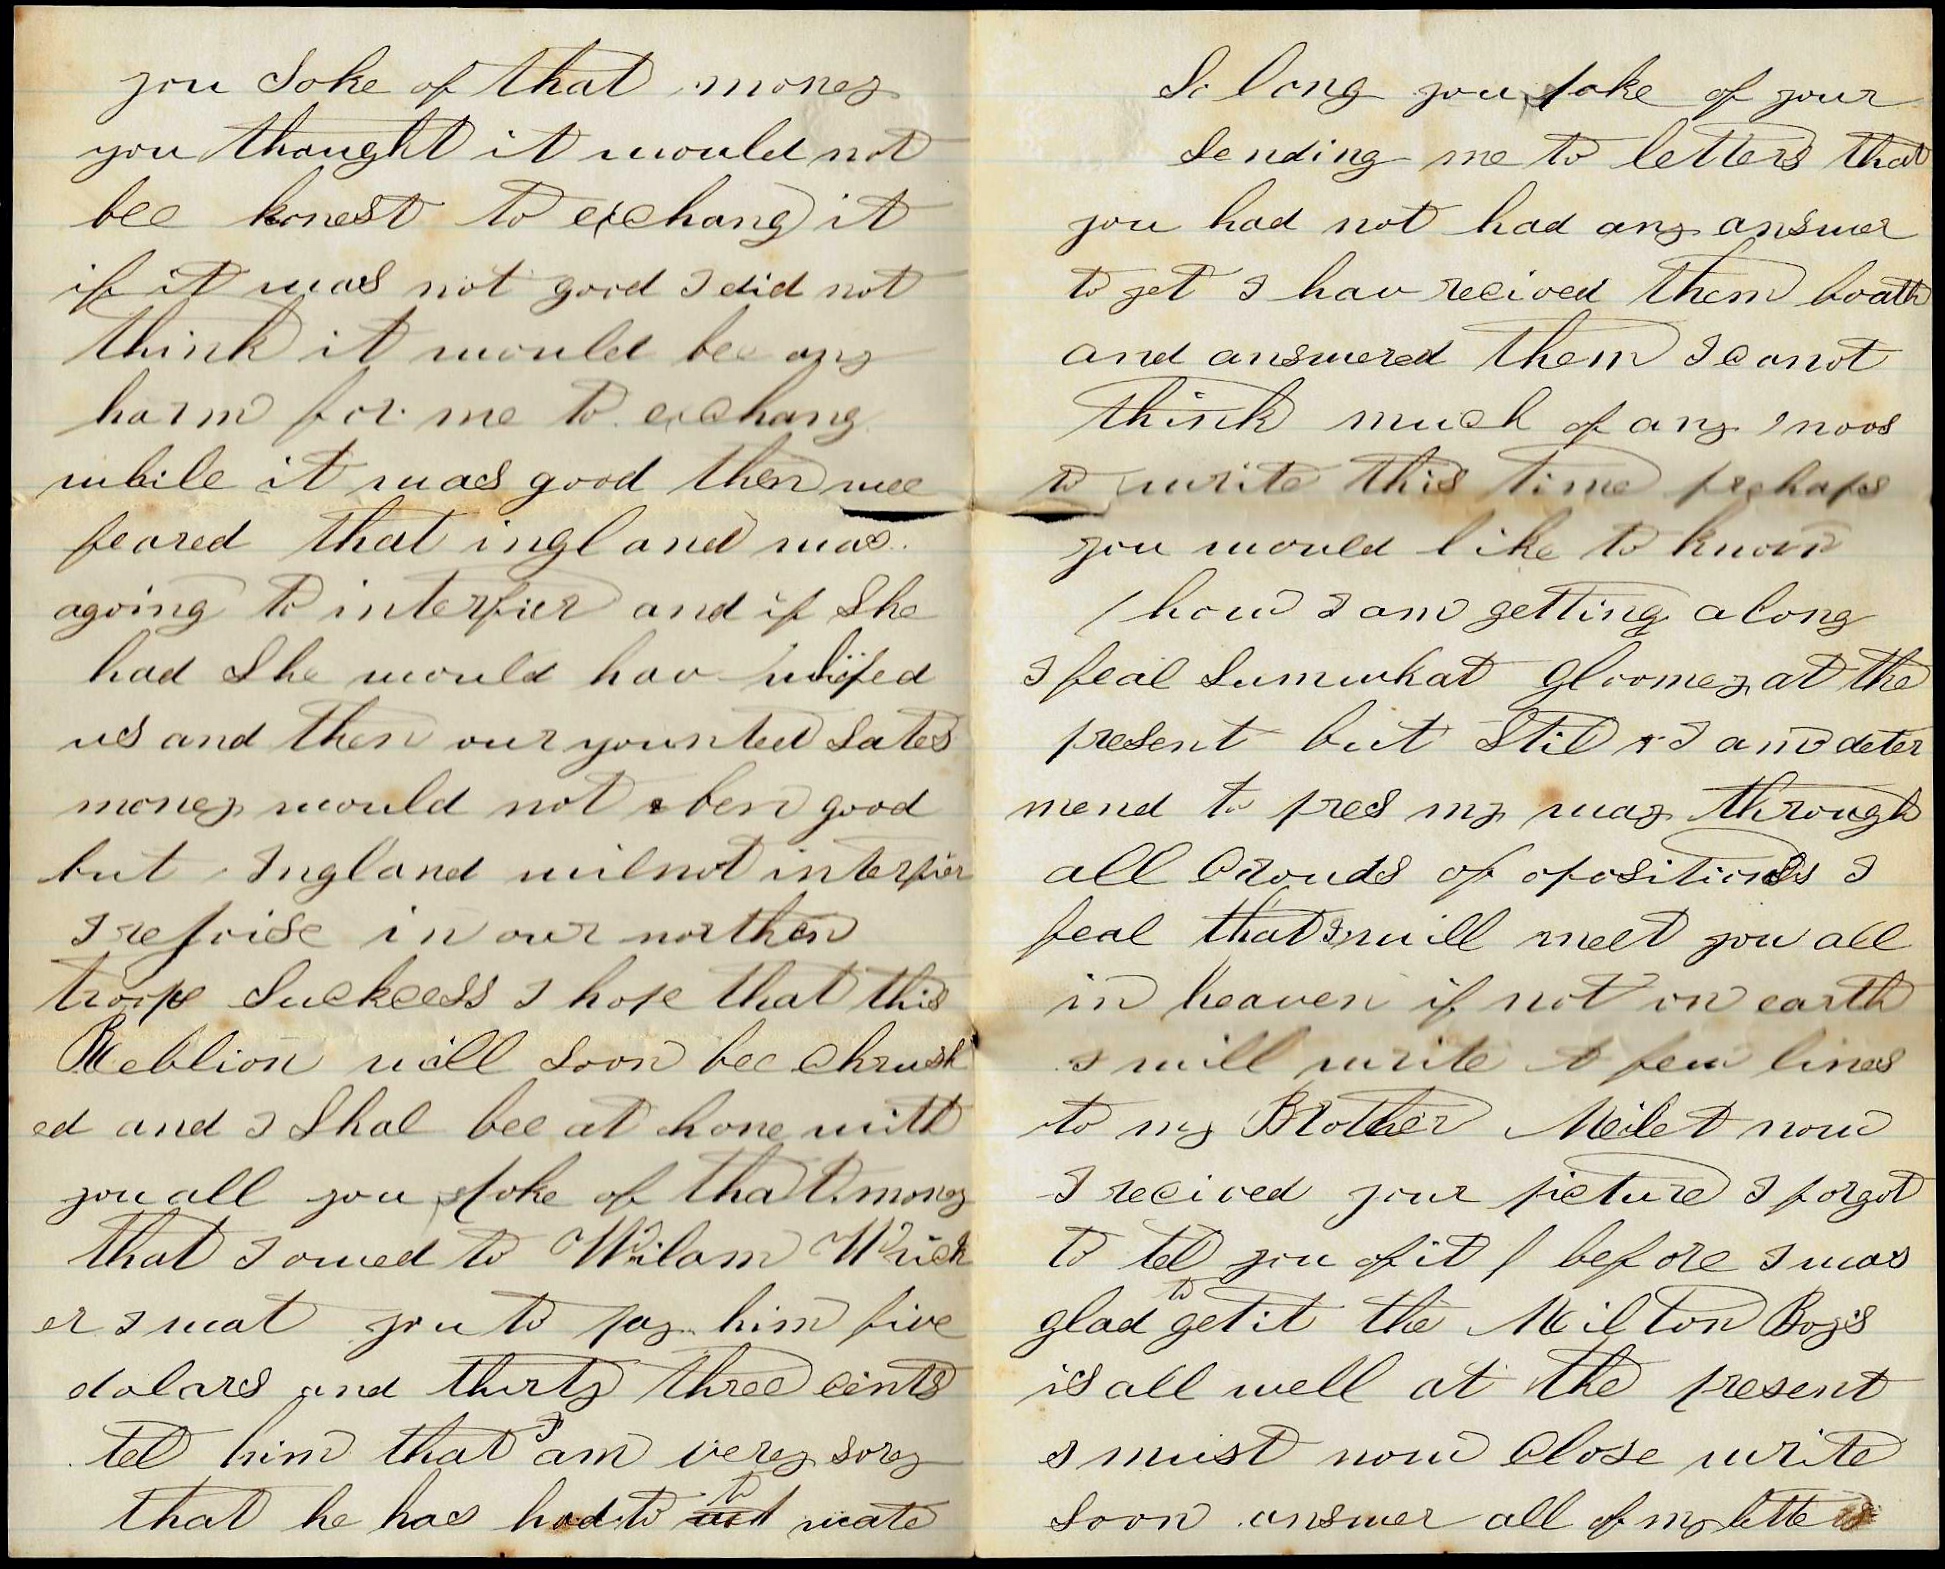 you Soke of that money
you thought it would not
bee honest to exchang it
if it was not good I did not
think it would bee any
harm for me to exchang
while it was good then wee
feared that ingland was
agoing to interfier and if She
had She would hav whiped
us and then our younted Sates
money would not ben good
but Ingland wil not interfier
I rejoise in our northen
troops Suckcess I hope that this
Reblion will Soon bee Chrush
ed and I Shal bee at home with
you all you spoke of that money
that I owed to Wilam Wick
er I wat you to pay him five
dolars and thirty three cents
tel him that I am verey sorey
that he has had to to wate
So long you spoke of your
Sending me to letters that
you had not had any answer
to yet I hav recived them boath
and answered them I canot
think much of any noos
to write this time prehaps
you would like to know
how I am getting along
I feal Sumwhat gloomey at the
present but Stil I am deter
mend to pres my way through
all Crouds of opositions I
feal that I will meet you all
in heaven if not on earth
I will write A few lines
to my Brother Milet now
I recived your picture I forgot
to tel you of it before I was
glad to get it the Milton Boys
is all well at the present
I must now Close write
Soon answer all of my letters